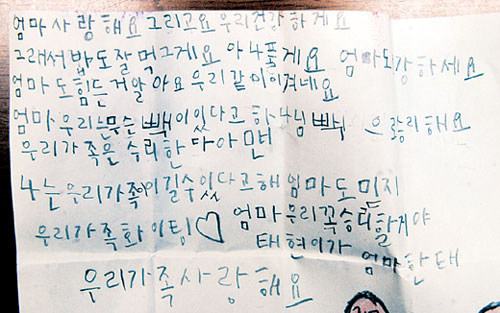 엄마 사랑해요 그리고요 우리건강하게요
그래서 밥도잘먹그게요 아나풀게요 엄마되강하세요
엄마도힘든거알아요우리같이이겨네요
엄마 우리는무슨빽이있다고 하나님빽 으로승리해요
우리가족은 승리한다아멘
나는우리가족이길수있다고해 엄마도미지
우리가족화이팅♡ 엄마우리꼭승리할게야
태현이가 엄마한태
우리가족사랑해요